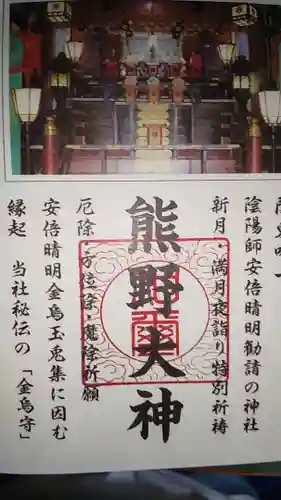 陰陽師安倍晴明勧請の神社
新月・満月夜詣り特別祈祷
熊野大神
厄除・方位除・魔除祈願
安倍晴明金烏玉兎集に因む
縁起　当社秘伝の「金烏守」